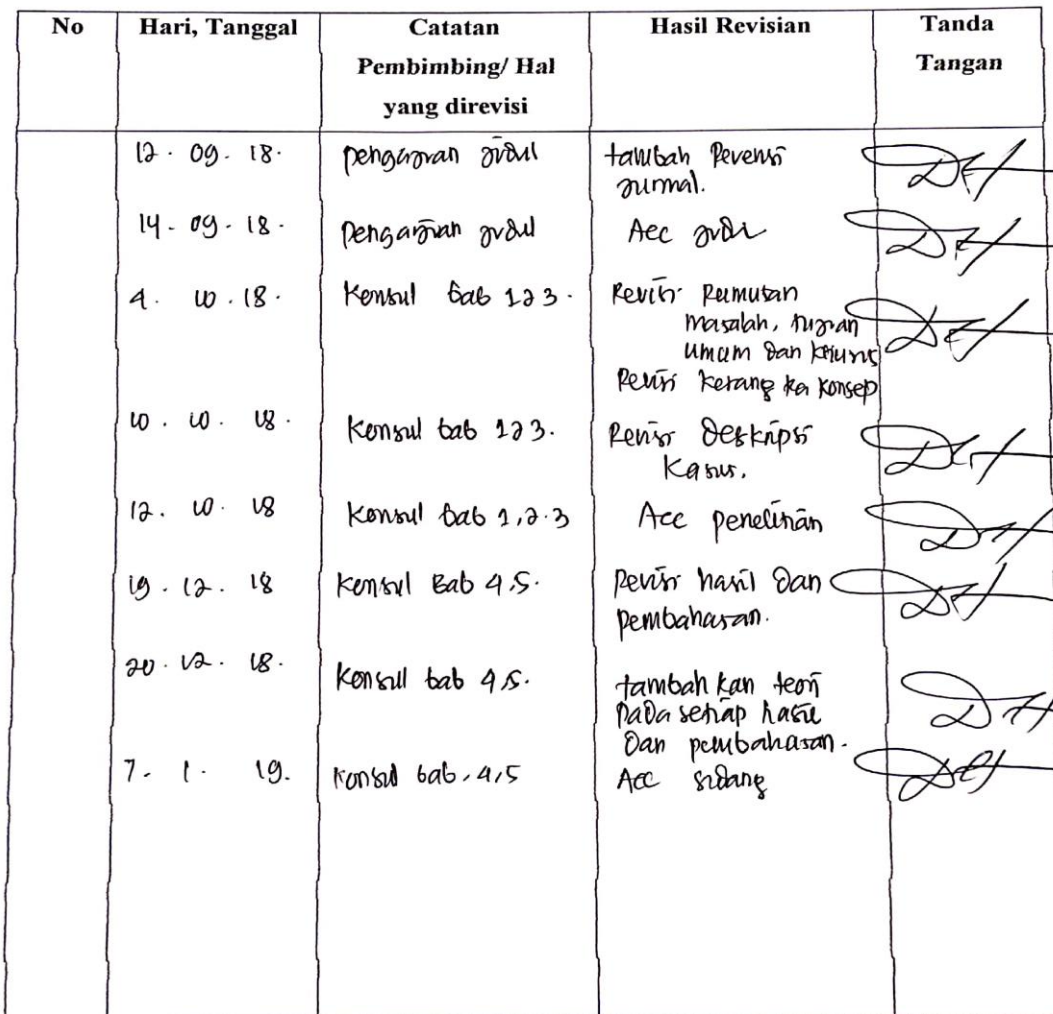 No Hari, Tanggal Catatan Pembimbing/ Hal yang direvisi Hasil Revisian Tanda Tangan
12. 09. 18. pengajuan judul tambah Revensi
jurnal.
14. 09. 18. Pengajuan judul Acc judul
4. 10. 18. Konsul bab 123. Revisi Rumusan
masalah, tujuan
umum dan khusus
Revisi kerangka konsep
10. 10. 18. Konsul bab 123. Revisi Deskripsi
Kasus.
12. 10. 18 Konsul bab 1,2.3 Acc penelitian
19. 12. 18 Konsul Bab 4.5. Revisi hasil dan
pembahasan.
20. 12. 18. Konsul bab 4.5. tambah kan teori
pada setiap hasil
dan pembahasan.
7. 1. 19. Konsul bab. 4,5 Acc sidang